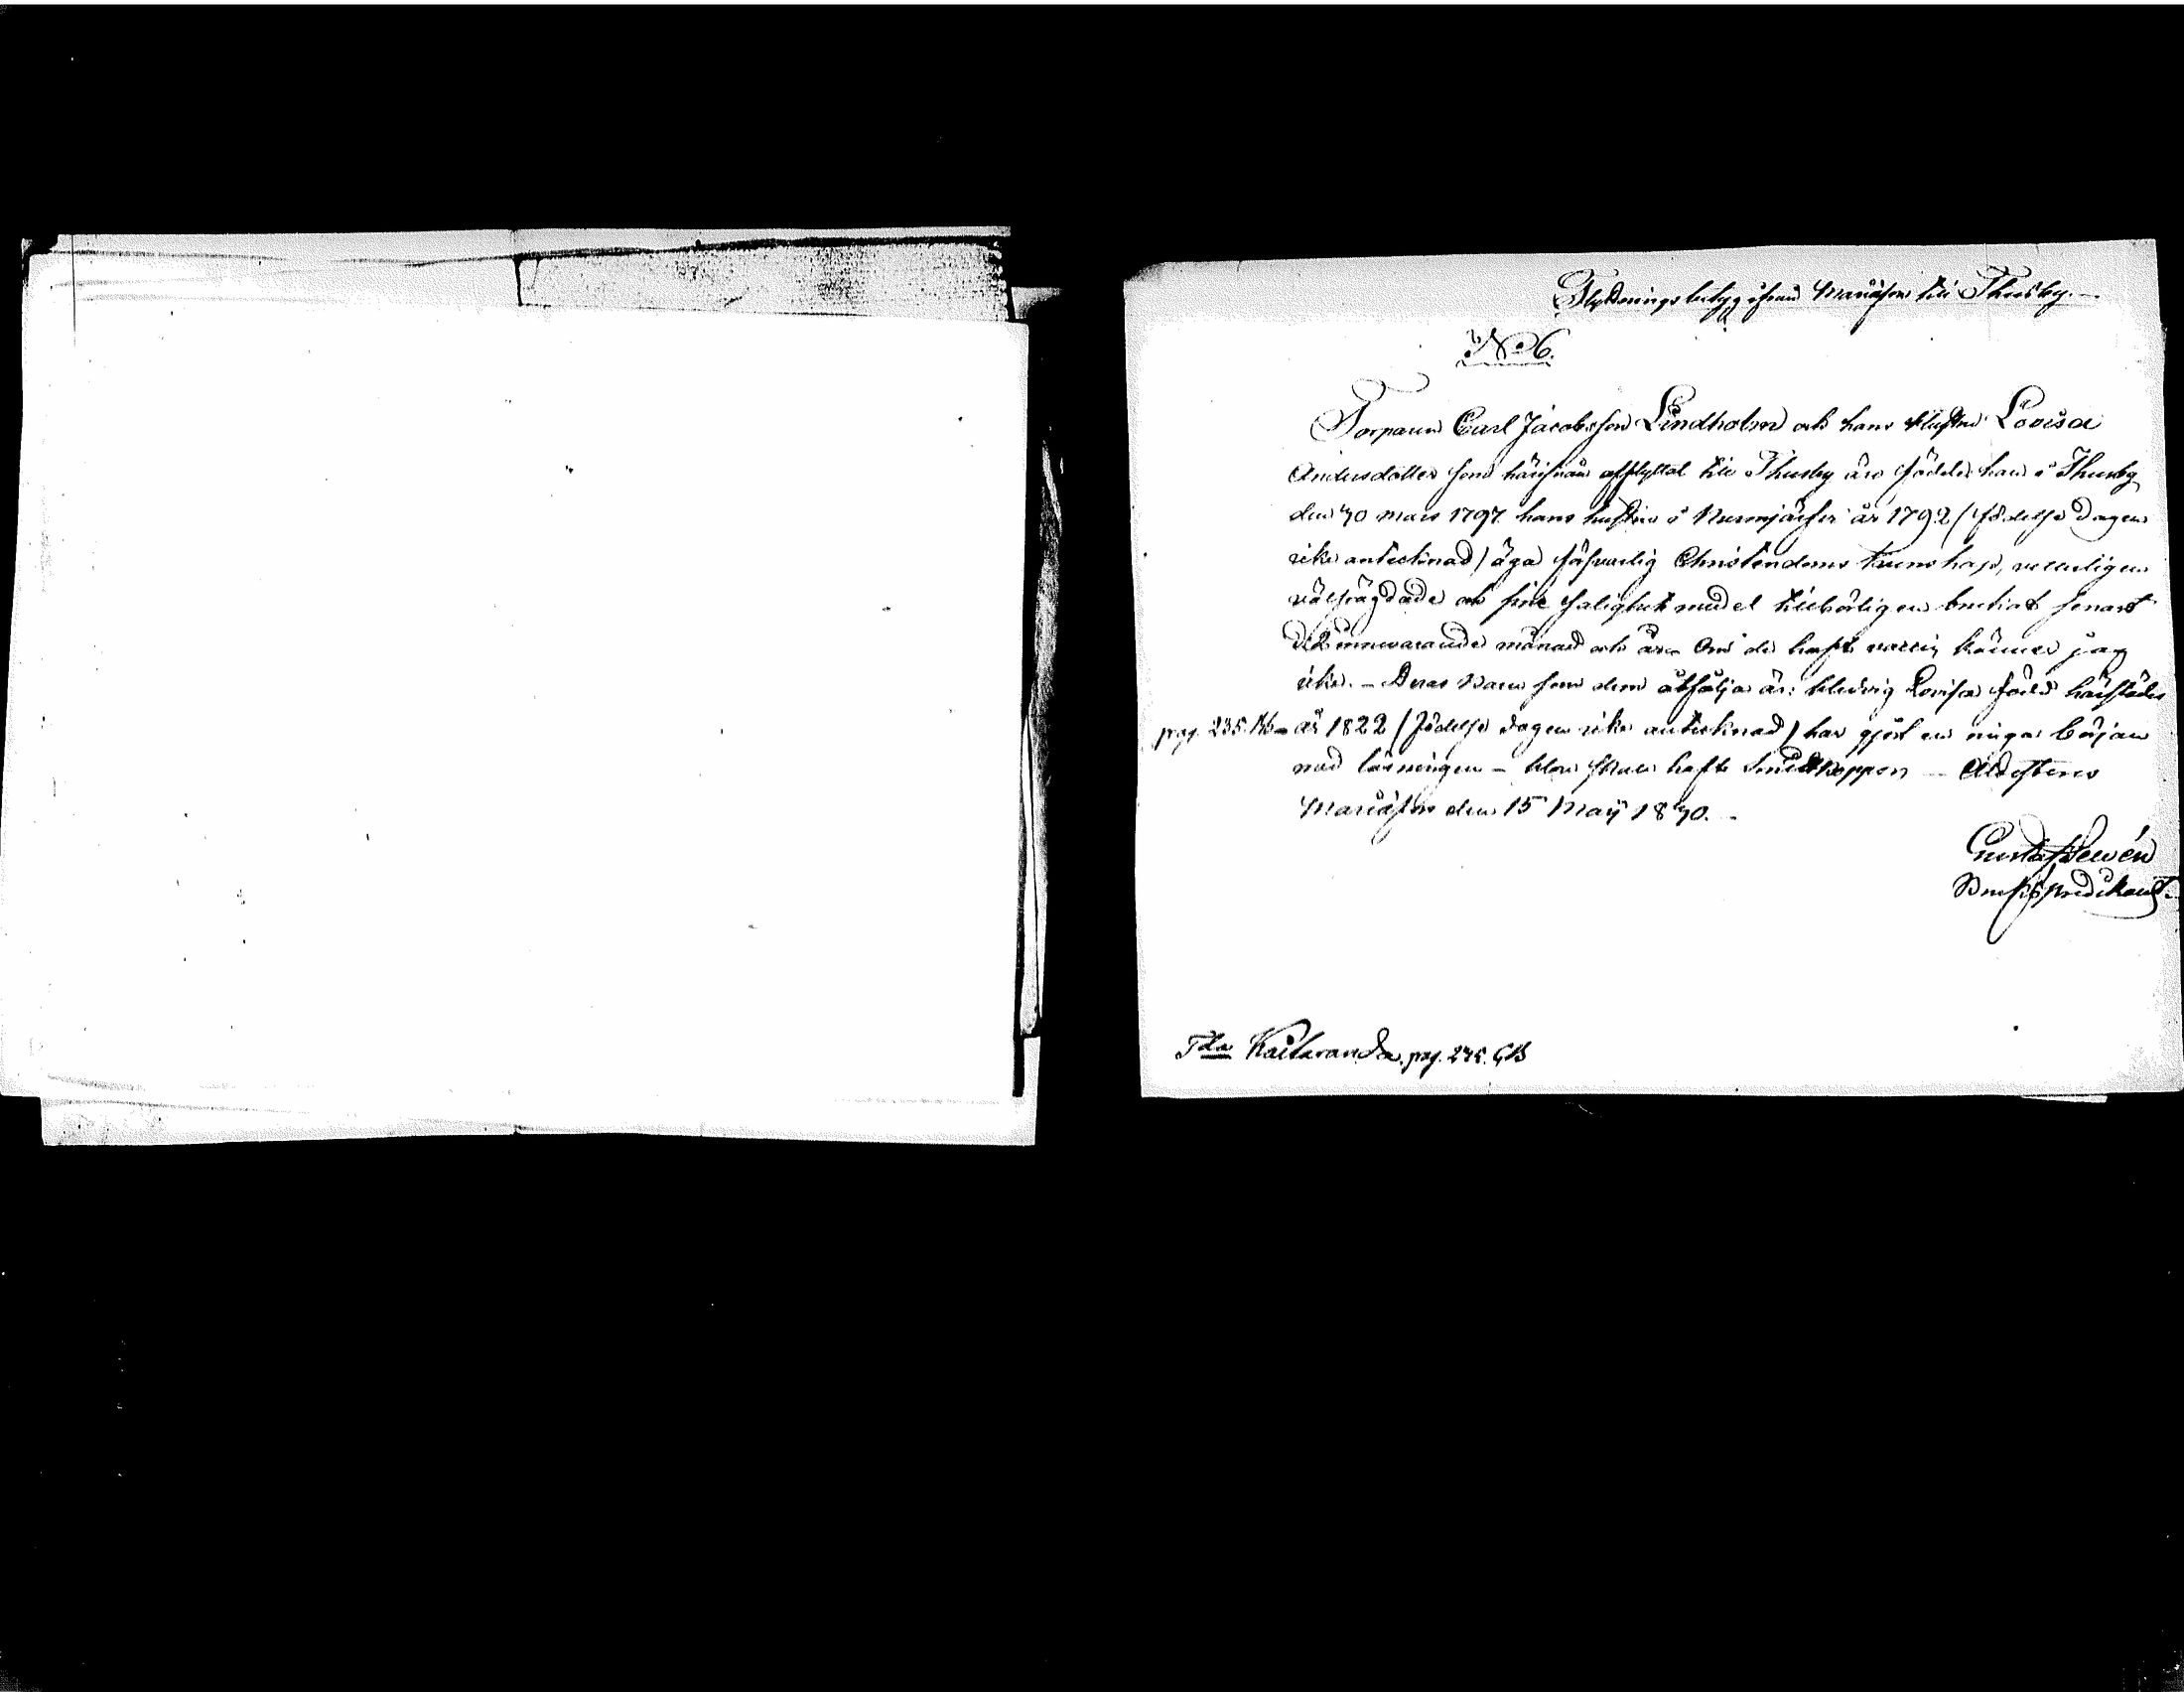 Flyttningsbetyg ifrån Mariæfors till Thusby.—
No 6.
Torparen Carl Jacobsson Lindholm och hans Hustru Lovisa
Andersdotter som härifrån afflyttat till Thusby äro födde han i Thusby
den 30 Mars 1797. hans hustru i Nurmijärfvi år 1792 (födelse dagen
icke antecknad) äga försvarlig Christendoms kunskap,
välfrägdade och sine salighets medel tillbörligen brukat senast
d. 2 innevarande månad och år. Om de haft vaccin känner jag
icke. – Deras Barn som dem åtfölja är: Hedvig Lovisa född härstädes
pag. 235. – år 1822 (födelse dagen icke antecknad) har gjort en ringa början
med läsningen – Hon skall haft Smittkoppor – Attesteras
Mariæfors den 15 Maij 1830. –
Gustaf
Bruks Predikant.
Kaitaranda. pag. 235.